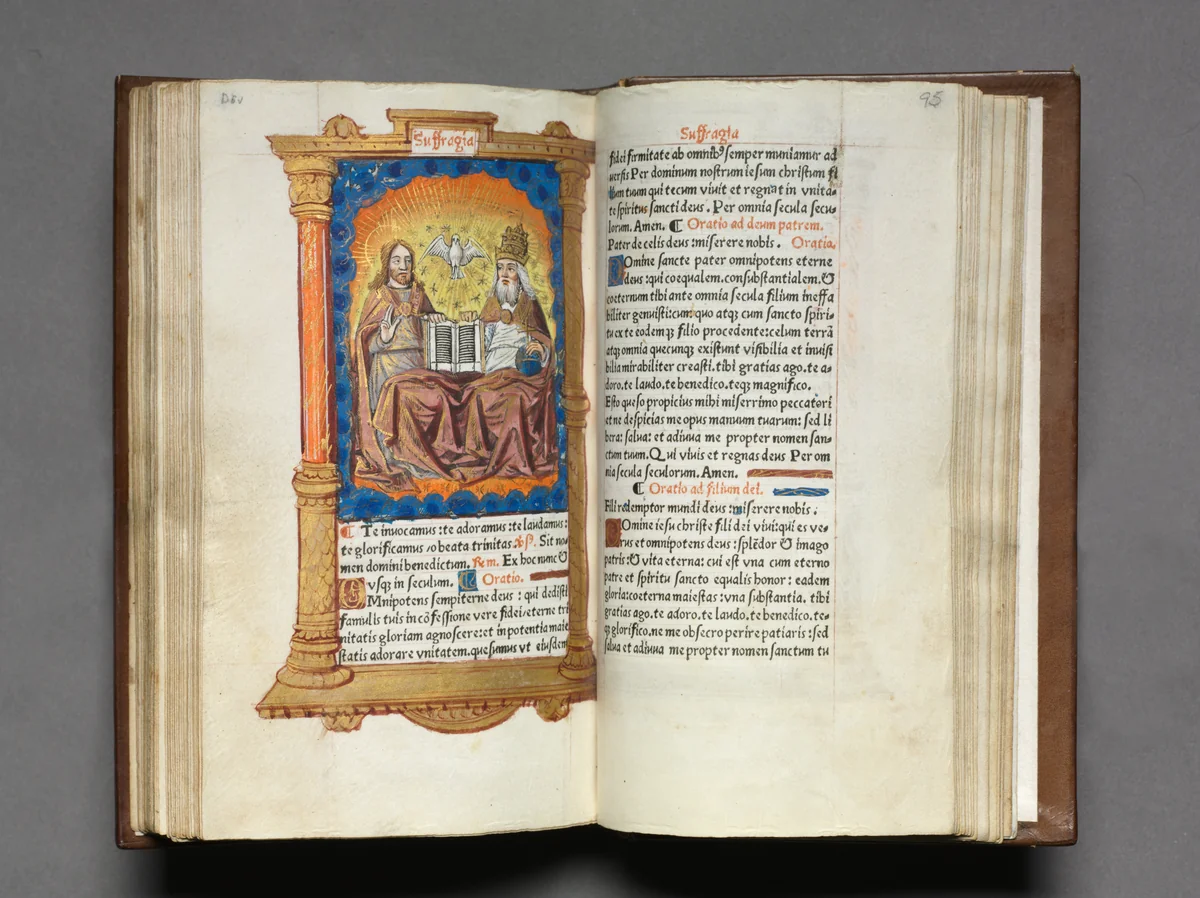 Suffragia
¶ Te inuocamus :te adoramus :te laudamus:
te glorificamus /o beata trinitas. Sit no
men domini benedictum. Ex hoc nunc &
vsq3 in seculum. Oratio.
OMnipotens sempiterne deus : qui dedisti
famulis tuis in cõfessione vere fidei/eterne tri
nitatis gloriam agnoscere:et in potentia maie
statis adorare vnitatem.quesumus vt eiusdem
95
Suffragia
fidei firmitate ab omnibꝰ semper muniamur ad
uersis Per dominum nostrum iesum christum fi
lium tuum qui tecum viuit et regnat in vnita-
te spiritus sancti deus . Per omnia secula secu-
lorum. Amen. ¶ Oratio ad deum patrem.
Pater de celis deus :miserere nobis . Oratio.
DOmine sancte pater omnipotens eterne
deus :qui coequalem.consubstantialem.&
coeternum tibi ante omnia secula filium ineffa
biliter genuisti:cum quo atq3 cum sancto spiri-
tu ex te eodemq3 filio procedente:celum terrã
atq3 omnia quecunq3 existunt visibilia et inuisi
bilia mirabiliter creasti. tibi gratias ago.te a-
doro.te laudo.te benedico.teq3 magnifico.
Esto queso propicius mihi miserrimo peccatori
et ne despicias me opus manuum tuarum: sed li
bera: salua: et adiuua me propter nomen san-
ctum tuum. Qui viuis et regnas deus Per om
nia secula seculorum. Amen.
¶ Oratio ad filium dei.
Fili redemptor mundi deus :miserere nobis .
DOmine iesu christe fili dei viui:qui es ve-
rus et omnipotens deus : splẽdor & imago
patris:& vita eterna: cui est vna cum eterno
patre et spiritu sancto equalis honor : eadem
gloria:coeterna maiestas : vna substantia. tibi
gratias ago.te adoro.te laudo.te benedico.te-
q3 glorifico.ne me obsecro perire patiaris : sed
salua et adiuua me propter nomen sanctum tu